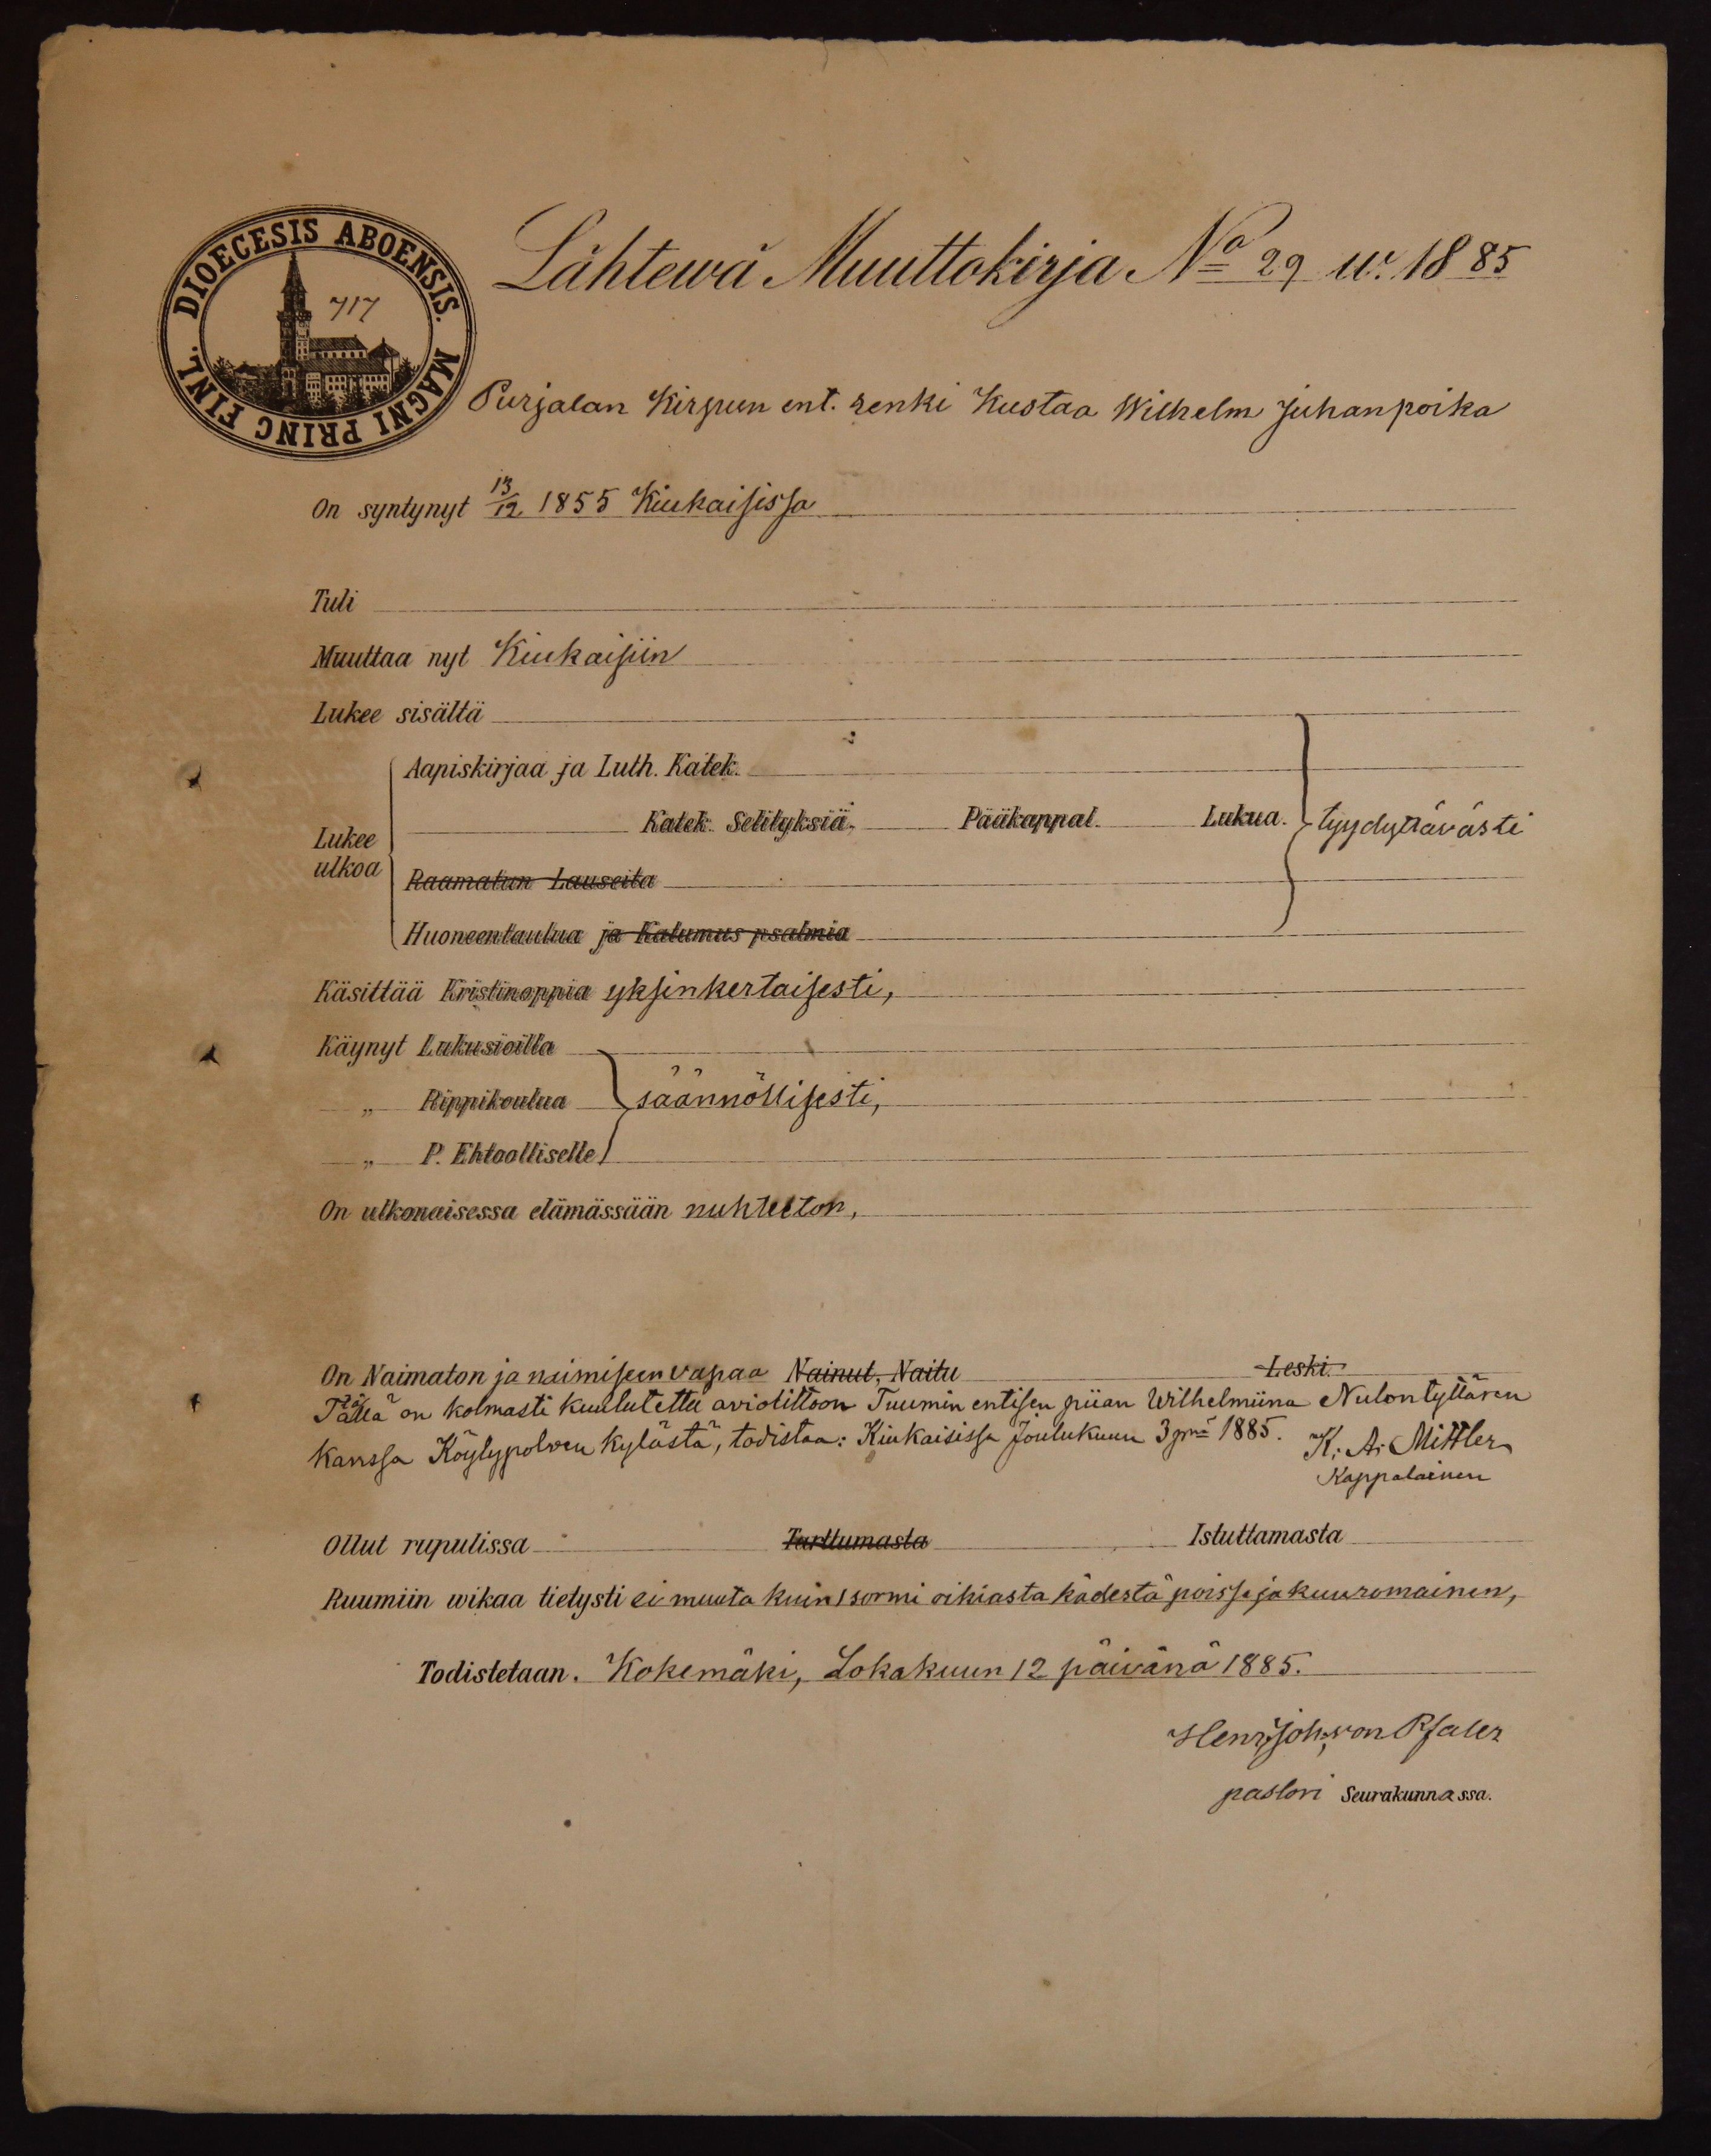 DIOECESIS ABOENSIS. MAGNI PRINC FINL.
717
Lähtewä Muuttokirja No 29 w. 1885
Purjalan Kirpun ent. renki Kustaa Wilhelm Juhanpoika
On syntynyt 13/12 1855 Kiukaisissa
Tuli
Muuttaa nyt Kiukaisiin
Lukee sisältä
Aapiskirjaa ja Luth. Katek.
Lukee ulkoa
Katek. Selityksiä. Pääkappal. Lukua. tyydyttävästi
Raamatun Lauseita
Huoneentaulua ja Katumus psalmia
Käsittää Kristinoppia yksinkertaisesti,
Käynyt Lukusioilla
„ Rippikoulua säännöllisesti,
„ P. Ehtoolliselle
On ulkonaisessa elämässään nuhteeton,
On Naimaton ja naimiseen vapaa Nainut, Naitu Leski.
on kolmasti kuulutettu aviolittoon Tuumin entisen piian Wilhelmiina Nulontyttären
kanssa Köylypolven kylästä, todistaa: Kiukaisissa Joulukuun 3 pnä 1885. K. A. Mittler
Kappalainen
Ollut rupulissa Tarttumasta Istuttamasta
Ruumiin wikaa tietysti ei muuta kuin 1 sormi oikiasta kädestä poissa ja kuuromainen,
Todistetaan. Kokemäki, Lokakuun 12 päivänä 1885.
Henr. Joh. von Pfaler
pastori Seurakunnassa.